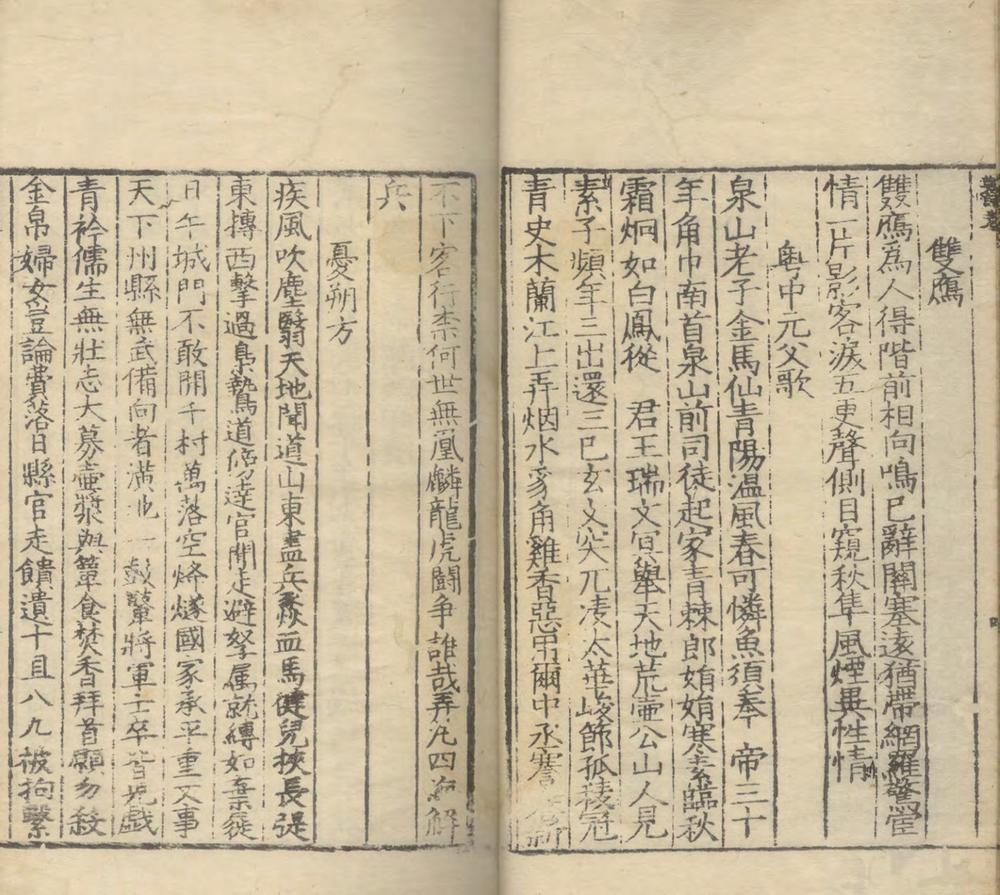 雙鴈
雙鴈為人得階前相向鳴已辭關塞遠猶帶網羅驚
情一片影客淚五更聲側目窺秋隼風煙異性情
粤中元父歌
泉山老子金馬仙青陽温風春可憐魚須奉 帝三十
年角巾南首泉山前司徒起家青棘郎娟娟寒素臨秋
霜炯如白鳳從 君王瑞文冥舉天地荒壺公山人見
素子頻年三出還三已玄文突兀凌太華峻節孤稜冠
青史木蘭江上弄烟水豸角雞香惡用爾中丞謇
不下客行柰何世無凰麟龍虎鬪爭誰哉弄凡四海解
兵
憂朔方
疾風吹塵翳天地聞道山東盡兵燹血馬健兒挾長
東摶西擊過梟鷙道傍達官開走避孥属就縛如棄蓰
日午城門不敢開千村萬落空烙燧國家承平重文事
天下州縣無武備向者滿地一鼓鼙將軍士卒皆兒戯
青衿儒生無壯志大募壺漿與簞食焚香拜首願勿殺
金帛婦女豈論費落日縣官走饋遺十且八九被拘繫